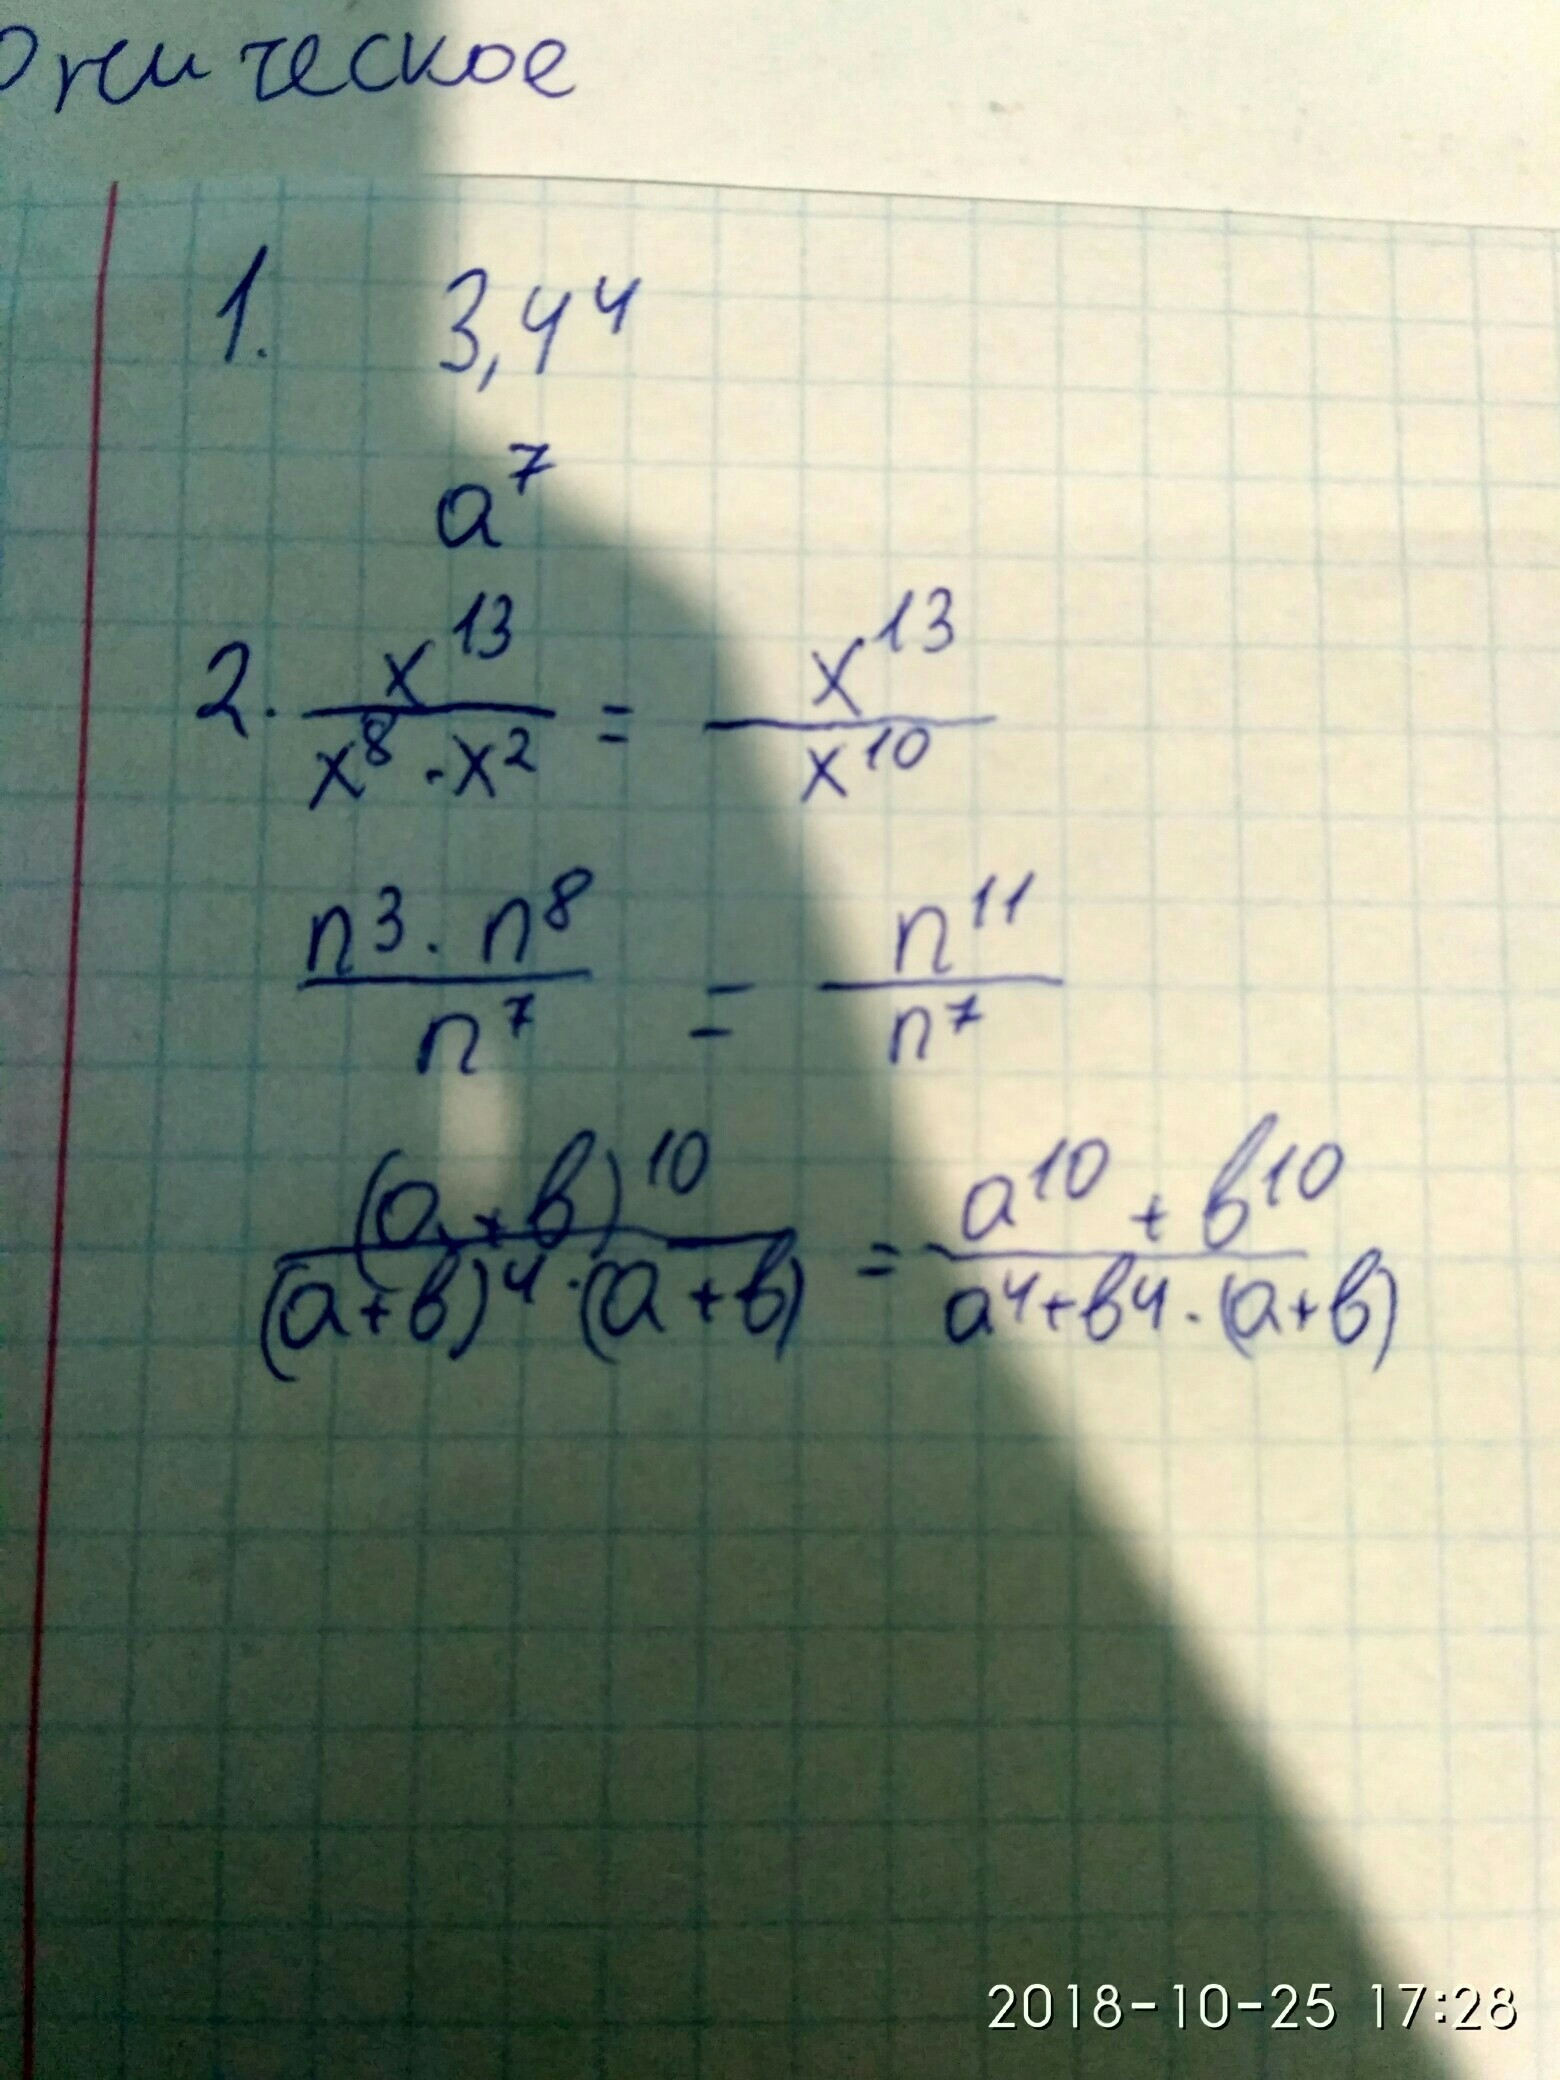 1. 3,4⁴
a⁷
2. x¹³/(x⁸ · x²) = x¹³/x¹⁰
(n³ · n⁸)/n⁷ = n¹¹/n⁷
(a + b)¹⁰/((a + b)⁴ · (a + b)) = (a¹⁰ + b¹⁰)/(a⁴ + b⁴ · (a + b))
2018-10-25 17:28